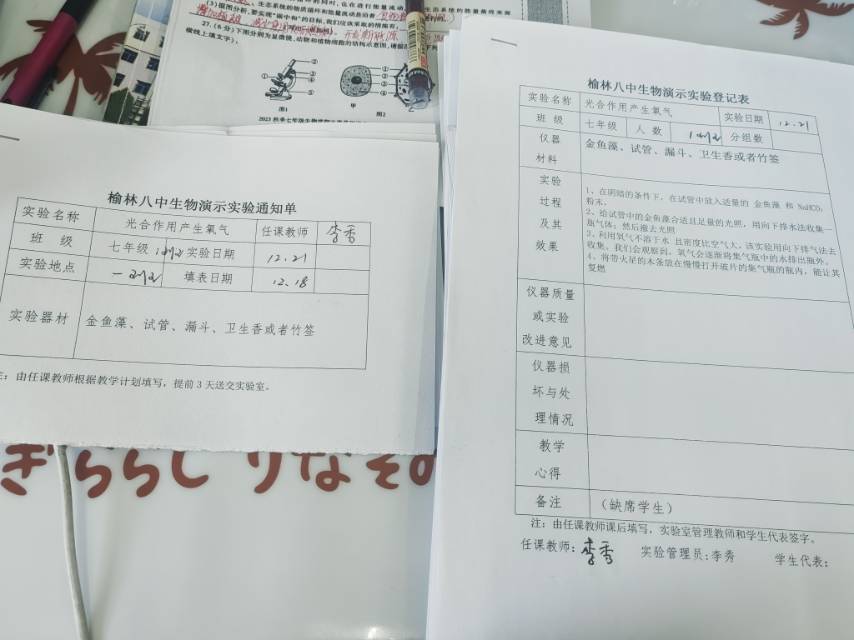 27.(6分)下图分别为显微镜、动物和植物细胞的结构示意图,请据
横线上填文字)。
①
②
③
④
⑤
图1
甲
图2
榆林八中生物演示实验通知单
实验名称 光合作用产生氧气 任课教师 李秀
班 级 七年级 实验日期 12.21
实验地点 填表日期 12.18
实验器材 金鱼藻、试管、漏斗、卫生香或者竹签
注:由任课教师根据教学计划填写,提前3天送交实验室。
ぎららし りなその
榆林八中生物演示实验登记表
实验名称 光合作用产生氧气 实验日期 12.21
班 级 七年级 人 数 分组数
仪器
材料
金鱼藻、试管、漏斗、卫生香或者竹签
实验
过程
及其
效果
1、在明暗的条件下,在试管中放入适量的 金鱼藻 和 NaHCO₃
粉末。
2、给试管中的金鱼藻合适且足量的光照,用向下排水法收集一
瓶气体;然后撤去光照
3、利用氧气不溶于水 且密度比空气大,该实验用向下排气法去
收集。我们会观察到,氧气会逐渐将集气瓶中的水排出瓶外。
4、将带火星的木条放在慢慢打开玻片的集气瓶的瓶内,能让其
复燃
仪器质量
或实验
改进意见
仪器损
坏与处
理情况
教学
心得
备注 (缺席学生)
注:由任课教师课后填写,实验室管理教师和学生代表签字。
任课教师:李秀 实验管理员:李秀 学生代表: